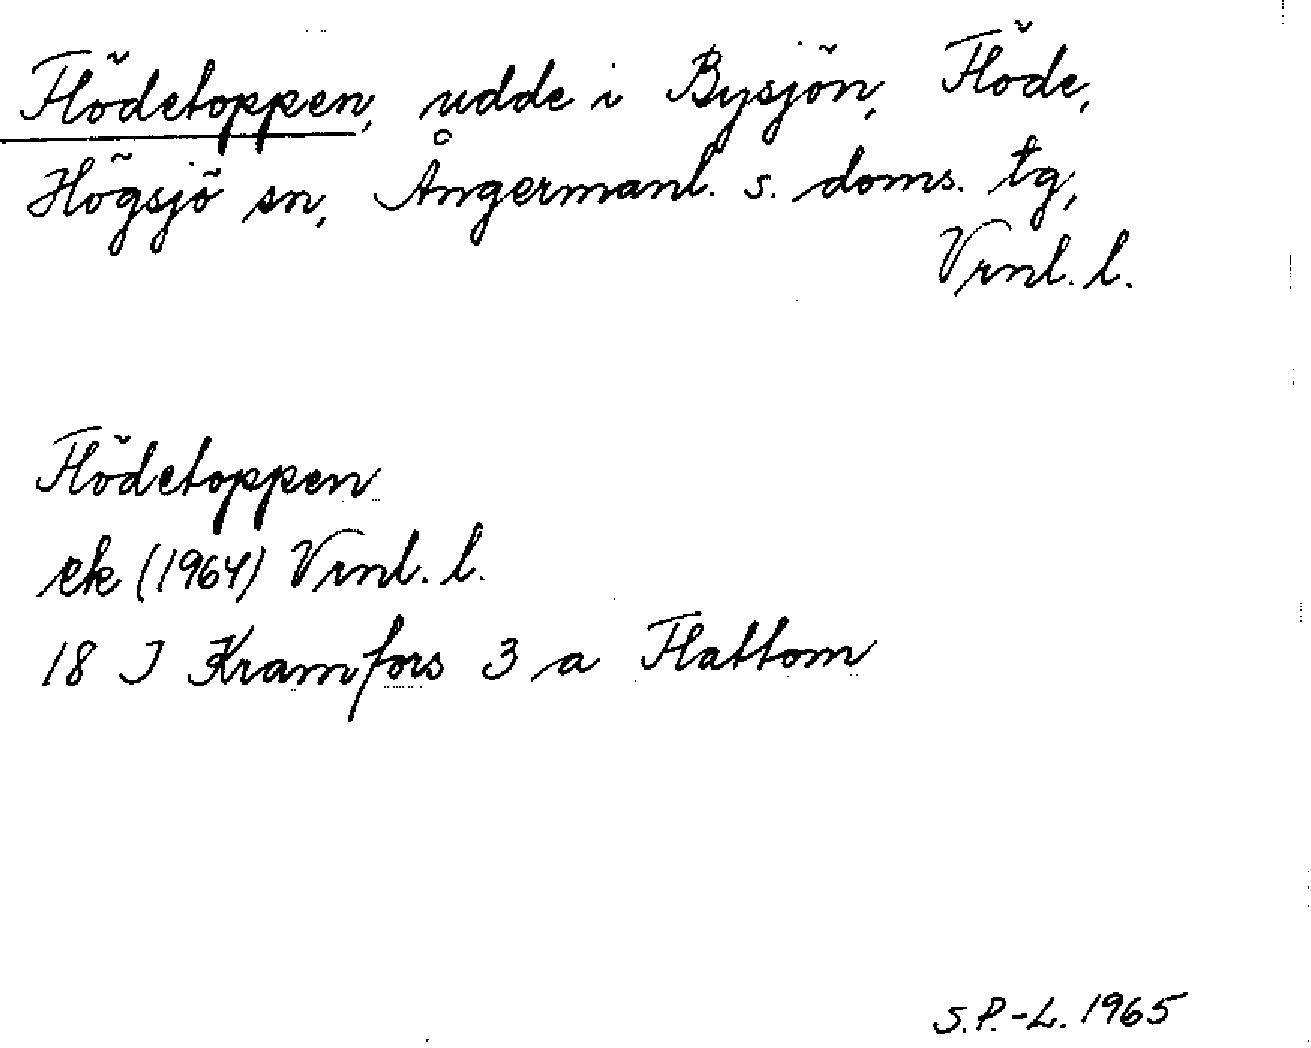 Flödetoppen, udde i Bysjön, Flöde,
Högsjö sn, Ångermanl. s. doms. tg,
Vrnl. l.
Flödetoppen
ek (1964) Vrnl. l.
18 J Kramfors 3 a Flattom
S.P.-L. 1965